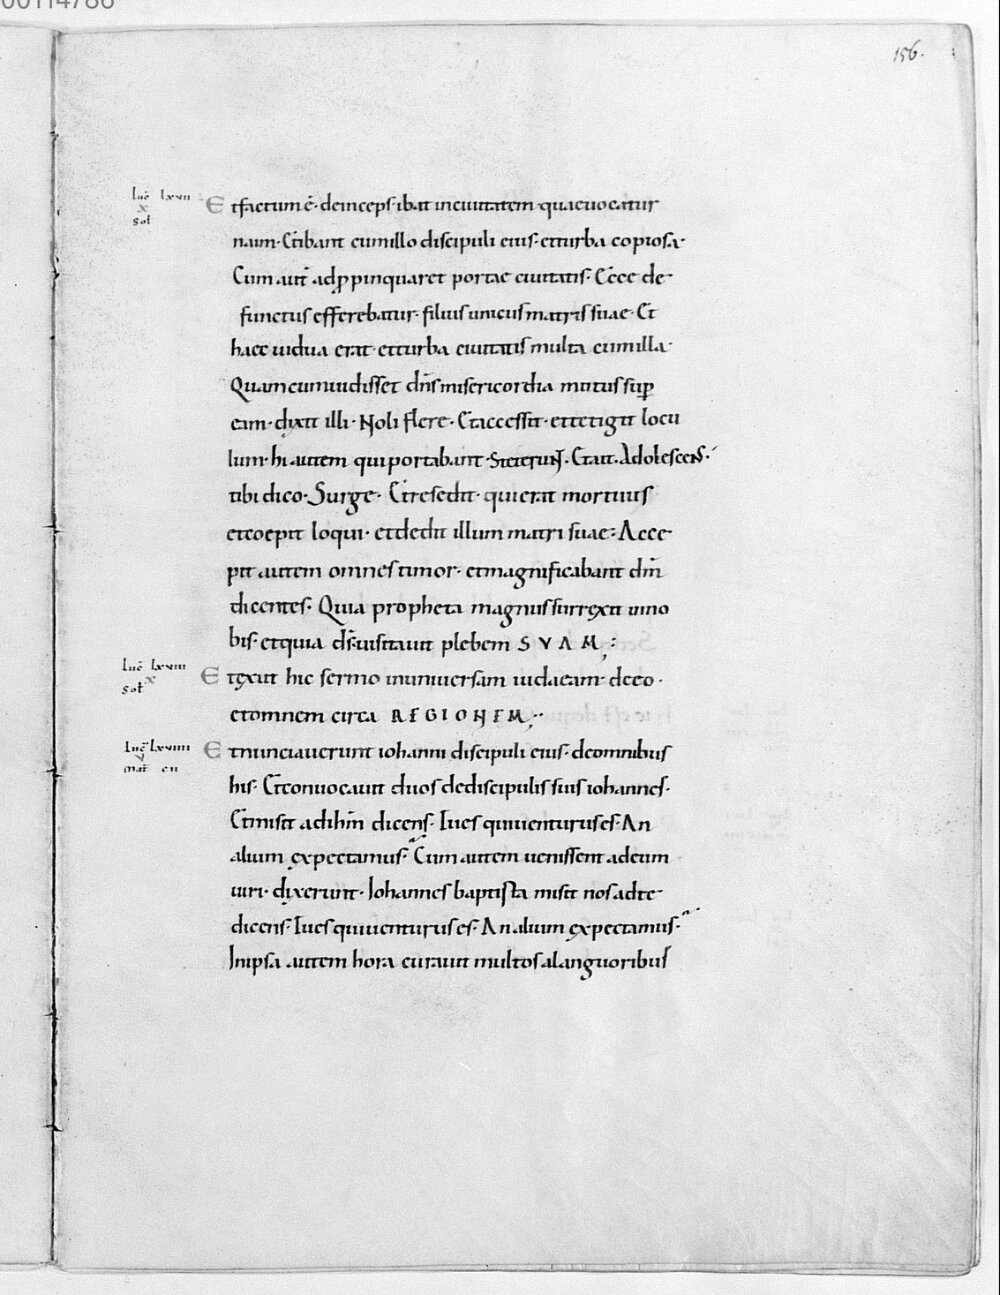 156.
luc̄ lxvii
x
sol
Et factum ē· deinceps· ibat in ciuitatem· quae uocatur
naim· Et ibant cum illo discipuli eius· et turba copiosa·
Cum aut̄ adp̱pinquaret portae ciuitatis· Ecce de
functus efferebatur· filius unicus matris suae· Et
haec uidua erat· et turba ciuitatis multa cum illa·
Quam cum uidisset dn̄s misericordia motus sup̱
eam· dixit illi· Noli flere· Et accessit· et tetigit locu
lum· hi autem qui portabant· Steterunt· Et ait· Adolescens·
tibi dico· Surge· Et resedit· qui erat mortuus
et coepit loqui· et dedit illum matri suae· Acce
pit autem omnes timor· et magnificabant dm̄
dicentes· Quia propheta magnus surrexit in no
bis· et quia ds̄ uisitauit plebem SVAM;
luc̄ lxviii
x
sol
Et exiit hic sermo in uniuersam iudaeam· de eo·
et omnem circa REGIONEM;
luc̄ lxviiii
v
mat̄ cii
Et nunciauerunt iohanni discipuli eius· de omnibus
his· Et conuocauit duos de discipulis suis iohannes·
Et misit ad ih̄m dicens· Tu es qui uenturus es· An
alium expectamus· Cum autem uenissent ad eum
uiri· dixerunt· Iohannes baptista misit nos ad te·
dicens· Tu es qui uenturus es· An alium expectamus·
In ipsa autem hora curauit multos a languoribus